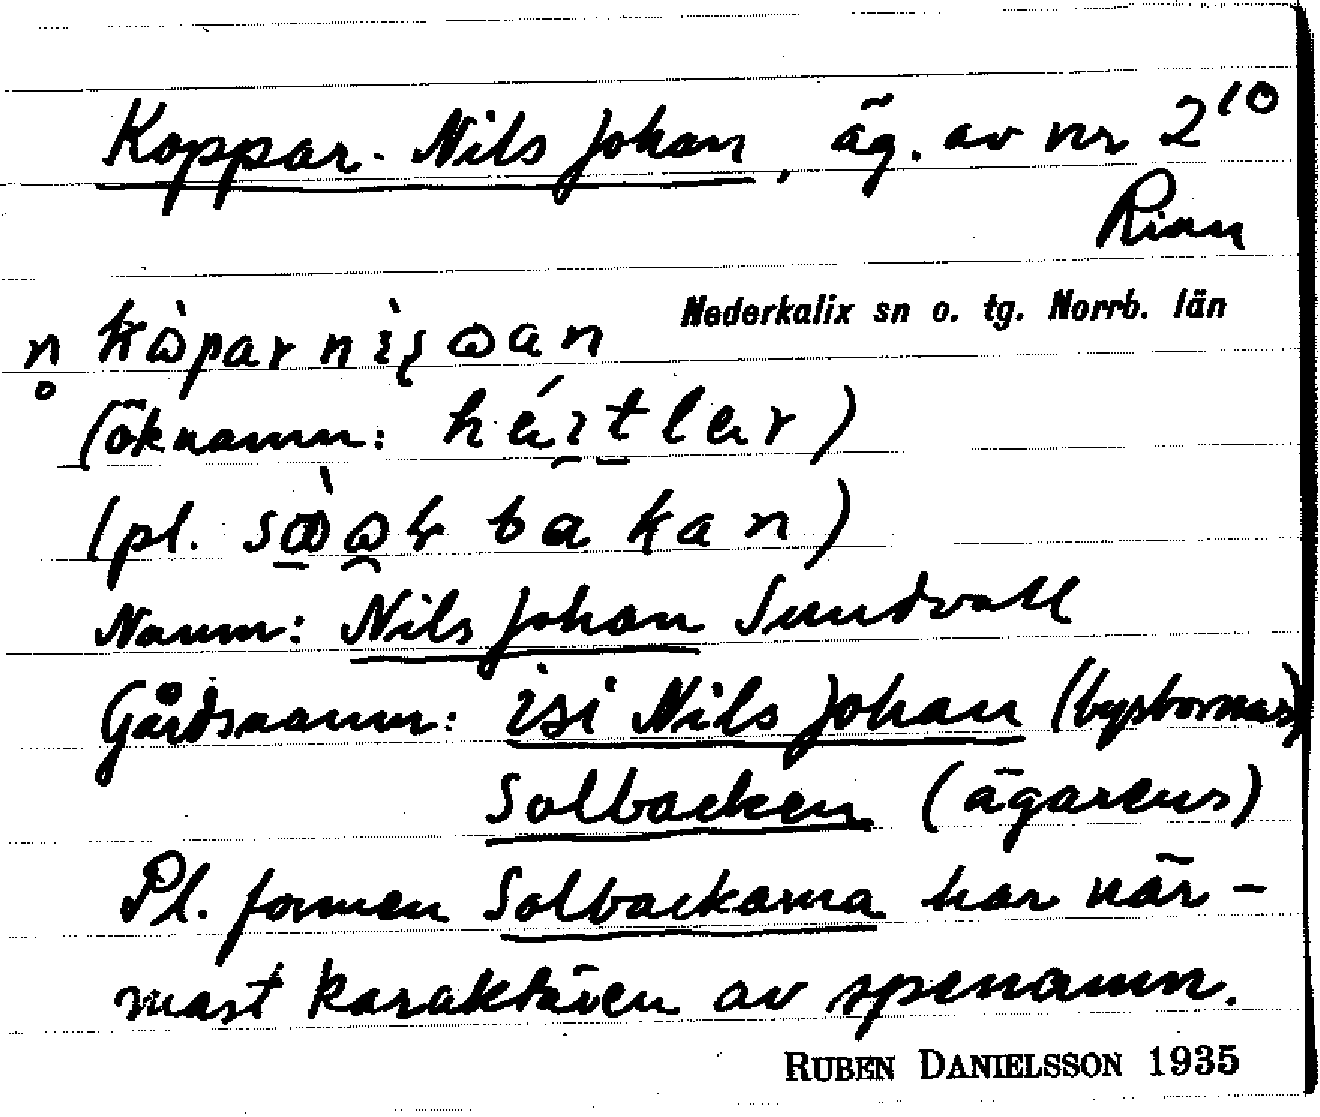 Koppar-Nils Johan, äg. av nr 2¹⁰
Rian
Nederkalix sn o. tg. Norrb. län
(öknamn:
(pl.
Namn: Nils Johan Sundvall
Gårdsnamn: isi Nils Johan (bysbornas)
Solbacken (ägarens)
Pl. formen Solbackarna har när-
mast karaktären av spenamn.
RUBEN DANIELSSON 1935